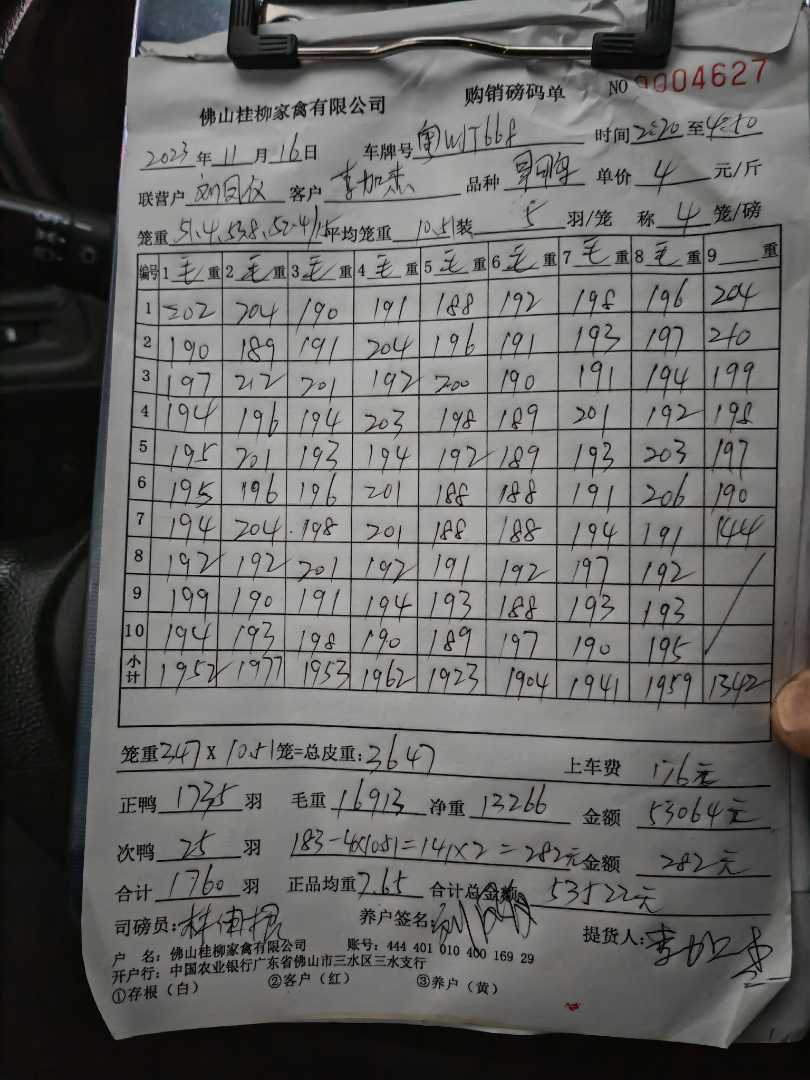 佛山桂柳家禽有限公司 购销磅码单 NO 0004627
2023年11月16日 车牌号 粤WJT668 时间2:20至4:50
联营户 刘凤仪 客户 李加杰 品种 单价 4 元/斤
笼重 51.4,53.8,52.4/15平均笼重 10.51装 5 羽/笼 称 4 笼/磅
编号 1毛重 2毛重 3毛重 4毛重 5毛重 6毛重 7毛重 8毛重 9 重
1 202 204 190 191 188 192 198 196 204
2 190 189 191 204 196 191 193 197 210
3 197 212 201 192 200 190 191 194 199
4 194 196 194 203 198 189 201 192 198
5 195 201 193 194 192 189 193 203 197
6 195 196 196 201 188 188 191 206 190
7 194 204 198 201 188 188 194 191 144
8 192 192 201 192 191 192 197 192
9 199 190 191 194 193 188 193 193
10 194 193 198 190 189 197 190 195
小计 1952 1977 1953 1962 1923 1904 1941 1959 1342
笼重347X10.51笼=总皮重:3647 上车费 176元
正鸭 1735 羽 毛重 16913 净重 13266 金额 53064元
次鸭 25 羽 183-4X10.51=141X2=282元 金额 282元
合计 1760 羽 正品均重7.65 合计总金额 53522元
司磅员: 养户签名: 提货人:李加杰
户 名:佛山桂柳家禽有限公司 账号:444 401 010 400 169 29
开户行:中国农业银行广东省佛山市三水区三水支行
①存根(白) ②客户(红) ③养户(黄)